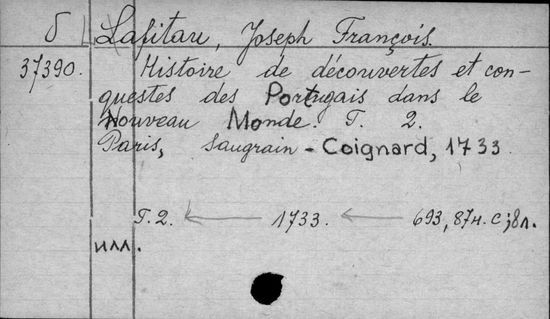 δ Lafitau, Joseph François.
37390. Histoire de découvertes et con-
questes des Portugais dans le
Nouveau Monde. T. 2.
Paris, Saugrain - Coignard, 1733
T. 2. ← 1733. ← 693, 87н. с; 8л.
илл.